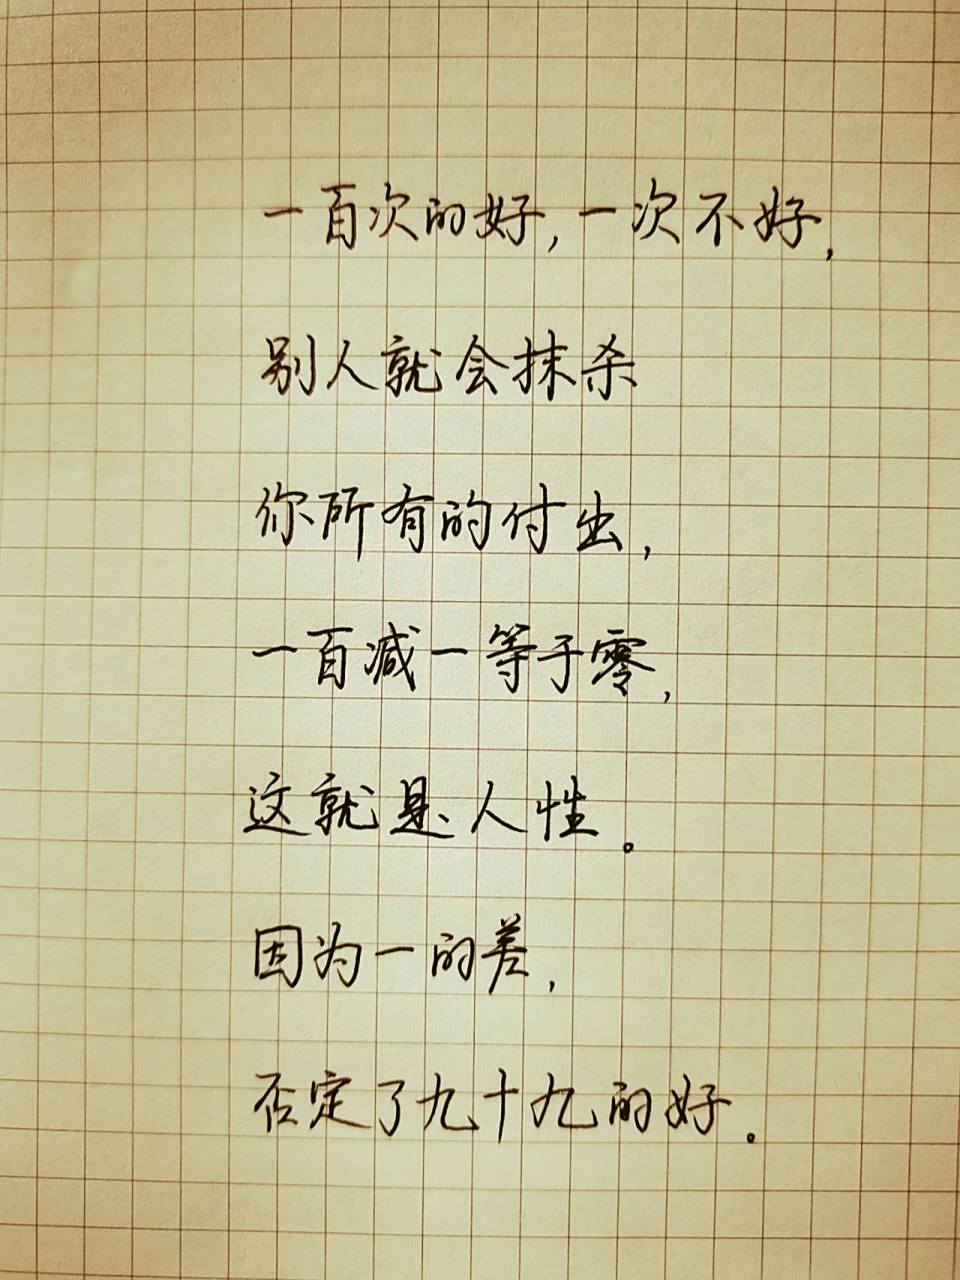 一百次的好,一次不好,
别人就会抹杀
你所有的付出,
一百减一等于零,
这就是人性。
因为一的差,
否定了九十九的好。